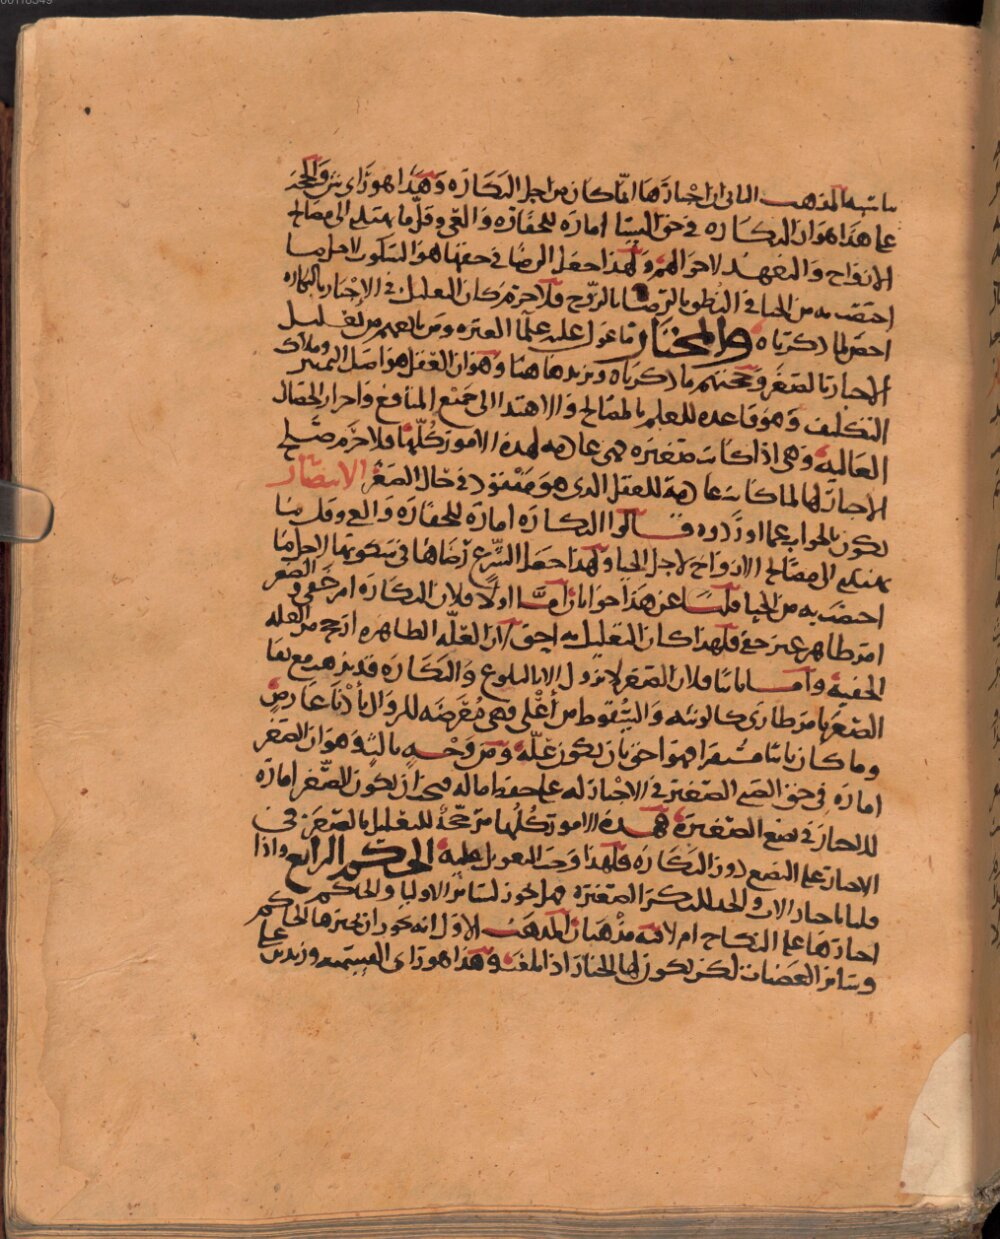 المذهب الثاني ان اجبارها انما كان من اجل البكاره وهذا هو راي ش والحجه
على هذا هو ان البكاره في حق النسا اماره للحقاره والغي وقل ما يهتدي الى مصالح
الازواج والتفهد لاحوالهم ولهذا جعل الرضا في حقها هو السكوت لاجل ما
اختصت به من الحيا في النطق بالرضا بالزوج فلا جرم كان التعليل في الاجبار بالبكاره
احق لما ذكرناه والمختار ما عول عليه علما العتره ومن تابعهم من تعليل
الاجبار بالصغر وحجتهم ما ذكرناه ونزيد هاهنا وهو ان العقل هو اصل التمييز وملاك
التكليف وهو قاعده للعلم بالمصالح والاهتدا الى جميع المنافع واحراز الخصال
العاليه وهي اذا كانت صغيره فهي عادمه لهذه الامور كلها فلا جرم صلح
الاجبار لها لما كانت عادمة للعقل الذي هو مفقود في حال الصغر الانتصار
يكون بالجواب عما اوردوه قالوا البكاره اماره للحقاره والعي وقل ما
يهتدي الى مصالح الازواج لاجل الحيا ولهذا جعل الشرع رضاها في سكوتها لاجل ما
اختصت به من الحيا قلنا عن هذا جوابان اما اولا فلان البكاره امر خفي والصغر
امر ظاهر غير خفي فلهذا كان التعليل به احق لان العله الظاهره ارجح من العله
الخفيه واما ثانيا فلان الصغر لا يزول الا بالبلوغ والبكاره قد يذهب مع بقا
الصغر بامر طاري كالوثبه والسقوط من اعلى فهي معرضه للزوال بادنا عارض
وما كان ثابتا مستقرا فهو احق بان يكون علة ومن وجه ثالث وهو ان الصغر
اماره في حق الصغيره في الاجبار له على حفظ ماله فيجب ان يكون الصغر اماره
للاجبار في بضع الصغيره فهذه الامور كلها مرجحة للتعليل بالصغر في
الاجبار على البضع دون البكاره فلهذا وجب التعويل عليه الحكم الرابع واذا
قلنا باجبار الاب والجد للبكر الصغيره فهل يجوز لسائر الاوليا والحاكم
اجبارها على النكاح ام لا فيه مذهبان المذهب الاول انه يجوز ان يجبرها الحاكم
وسائر العصبات لكن يكون لها الخيار اذا بلغت وهذا هو راي القسميه وزيد بن علي